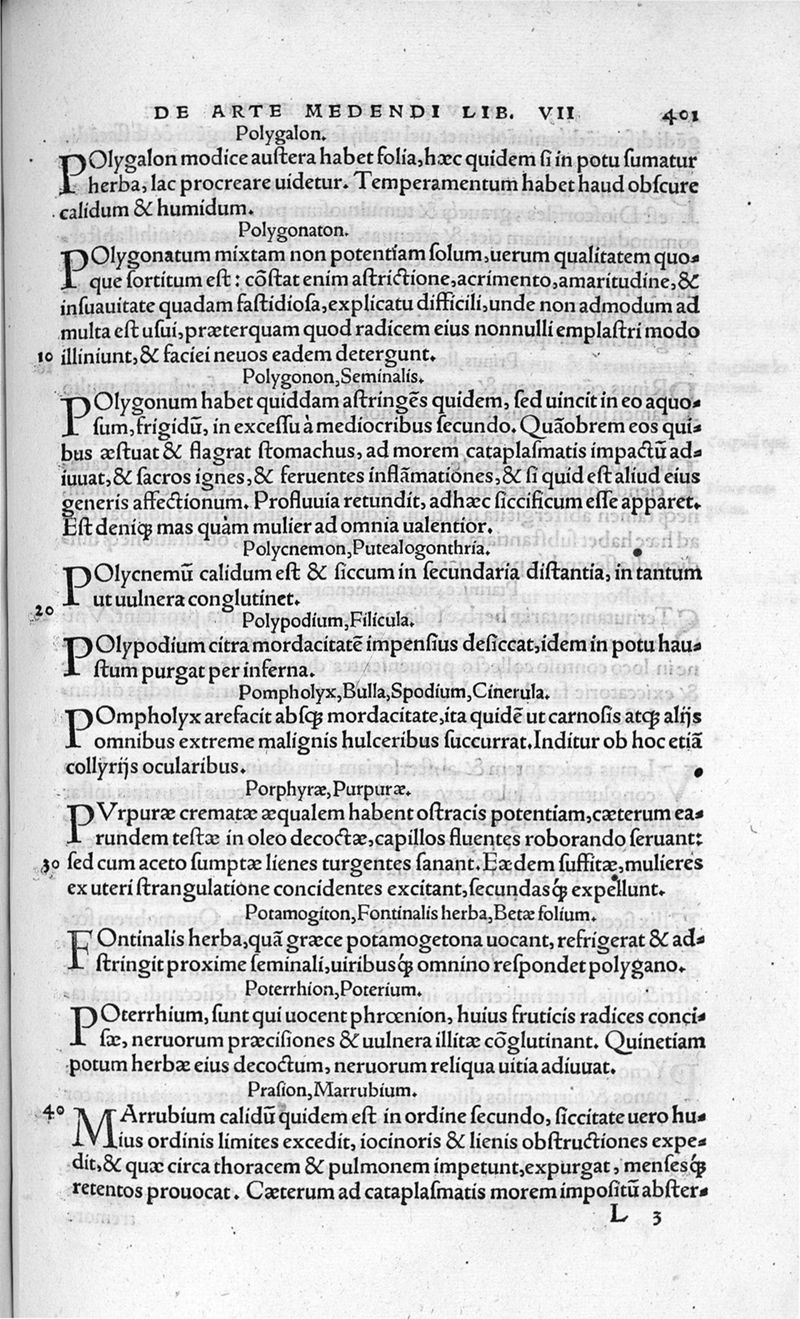 DE ARTE MEDENDI LIB. VII 401
Polygalon.
POlygalon modice auſtera habet folia, hæc quidem ſi in potu ſumatur
herba, lac procreare uidetur. Temperamentum habet haud obſcure
calidum & humidum.
Polygonaton.
POlygonatum mixtam non potentiam ſolum, uerum qualitatem quo-
que ſortitum eſt: cõſtat enim aſtrictione, acrimento, amaritudine, &
inſuauitate quadam faſtidioſa, explicatu difficili, unde non admodum ad
multa eſt uſui, præterquam quod radicem eius nonnulli emplaſtri modo
10 illiniunt, & faciei neuos eadem detergunt.
Polygonon, Seminalis.
POlygonum habet quiddam aſtringẽs quidem, ſed uincit in eo aquo-
ſum, frigidũ, in exceſſu à mediocribus ſecundo. Quãobrem eos qui-
bus æſtuat & flagrat ſtomachus, ad morem cataplaſmatis impactũ ad-
iuuat, & ſacros ignes, & feruentes inflãmationes, & ſi quid eſt aliud eius
generis affectionum. Profluuia retundit, adhæc ſiccificum eſſe apparet.
Eſt deniqꝫ mas quàm mulier ad omnia ualentior.
Polycnemon, Putealogonthria.
POlycnemũ calidum eſt & ſiccum in ſecundaria diſtantia, in tantum
ut uulnera conglutinet.
20 Polypodium, Filicula.
POlypodium citra mordacitatẽ impenſius deſiccat, idem in potu hau-
ſtum purgat per inferna.
Pompholyx, Bulla, Spodium, Cinerula.
POmpholyx arefacit abſqꝫ mordacitate, ita quidẽ ut carnoſis atqꝫ alijs
omnibus extreme malignis hulceribus ſuccurrat. Inditur ob hoc etiã
collyrijs ocularibus.
Porphyræ, Purpuræ.
PVrpuræ crematæ æqualem habent oſtracis potentiam, cæterum ea-
rundem teſtæ in oleo decoctæ, capillos fluentes roborando ſeruant:
30 ſed cum aceto ſumptæ lienes turgentes ſanant. Eædem ſuffitæ, mulieres
ex uteri ſtrangulatione concidentes excitant, ſecundasqꝫ expellunt.
Potamogiton, Fontinalis herba, Betæ folium.
FOntinalis herba, quã græce potamogetona uocant, refrigerat & ad-
ſtringit proxime ſeminali, uiribusqꝫ omnino reſpondet polygano.
Poterrhion, Poterium.
POterrhium, ſunt qui uocent phrœnion, huius fruticis radices conci-
ſæ, neruorum præciſiones & uulnera illitæ cõglutinant. Quinetiam
potum herbæ eius decoctum, neruorum reliqua uitia adiuuat.
Praſion, Marrubium.
40 MArrubium calidũ quidem eſt in ordine ſecundo, ſiccitate uero hu-
ius ordinis limites excedit, iocinoris & lienis obſtructiones expe-
dit, & quæ circa thoracem & pulmonem impetunt, expurgat, menſesqꝫ
retentos prouocat. Cæterum ad cataplaſmatis morem impoſitũ abſter-
L 3